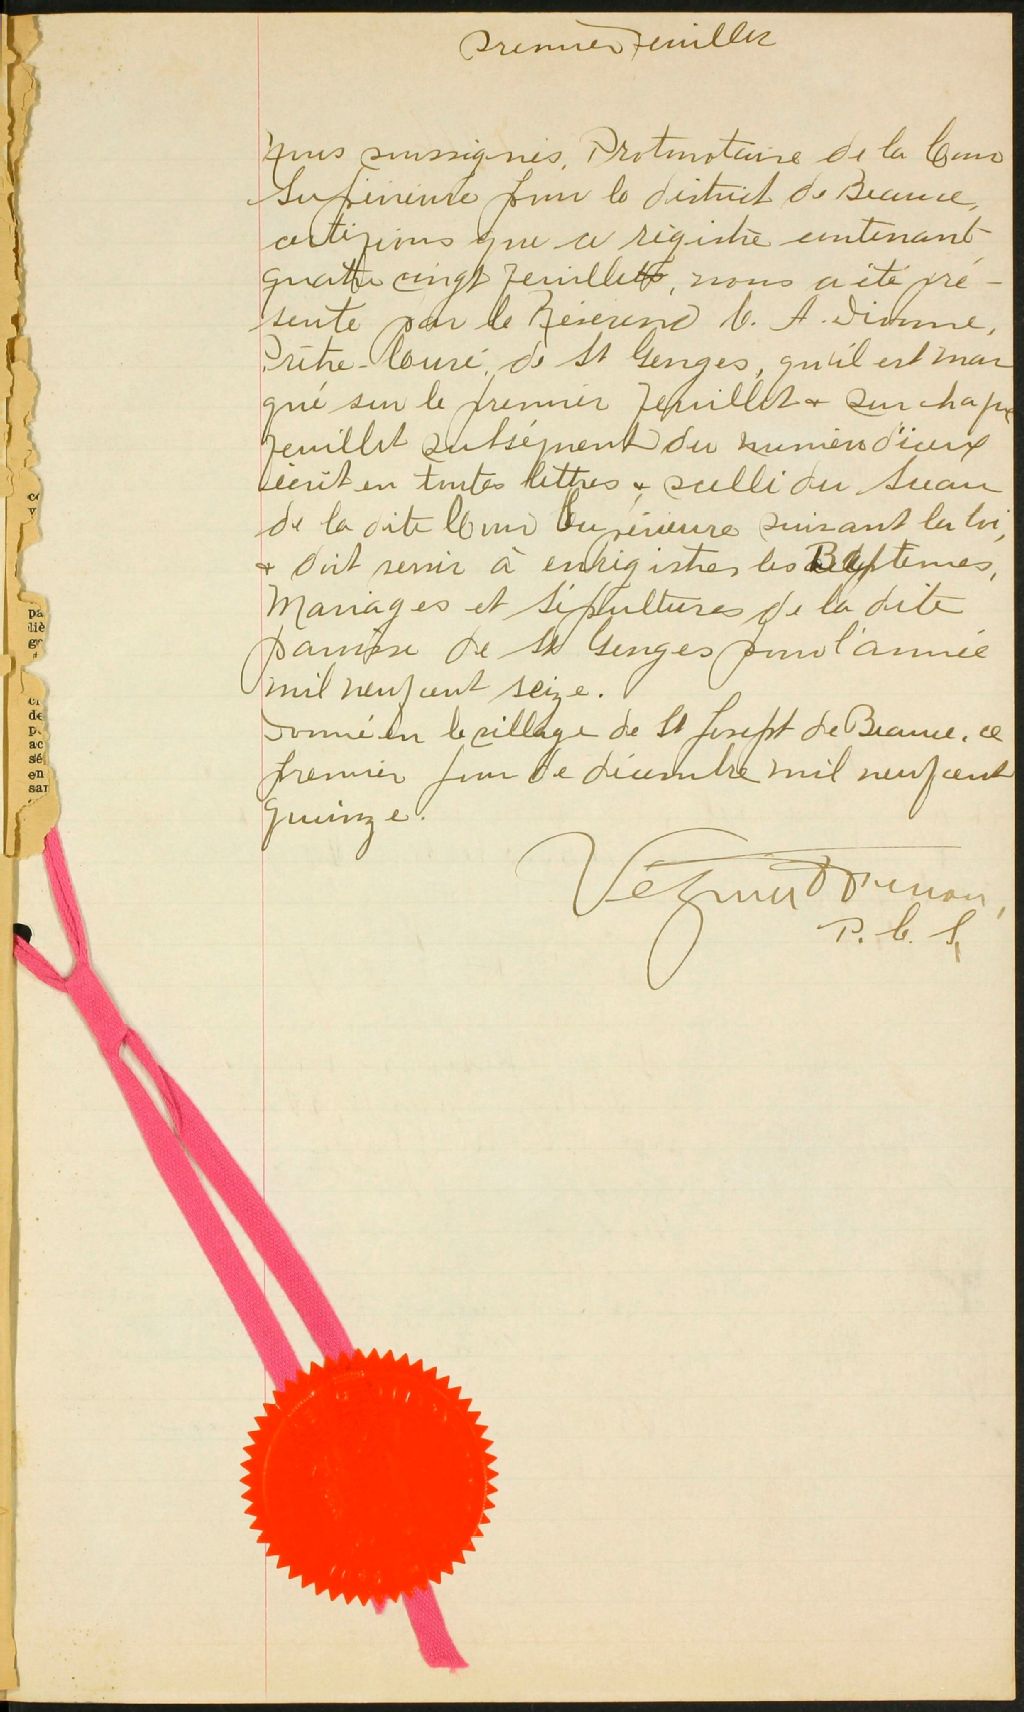 Premier feuillet
Nous soussignés, Protonotaire de la Cour
Supérieure pour le district de Beauce,
certifions que ce régistre contenant
quatre vingt feuillets, nous a été pré-
senté par le Révérend C. A. Dionne,
Prêtre-Curé, de St Georges, qu'il est mar
qué sur le premier feuillet & sur chaque
feuillet subséquent du numéro d'iceux
écrit en toutes lettres & scellé du Sceau
de la dite Cour Supérieure suivant la loi,
& doit servir à enrégistrer les Baptemes,
Mariages et Sépultures de la dite
paroisse de St Georges pour l'année
mil neuf cent seize.
Donné en le village de St Joseph de Beauce, ce
premier jour de décembre mil neuf cent
quinze.
Vézina
P. C. S.
pa
liè
de
ac
sé
en
sar